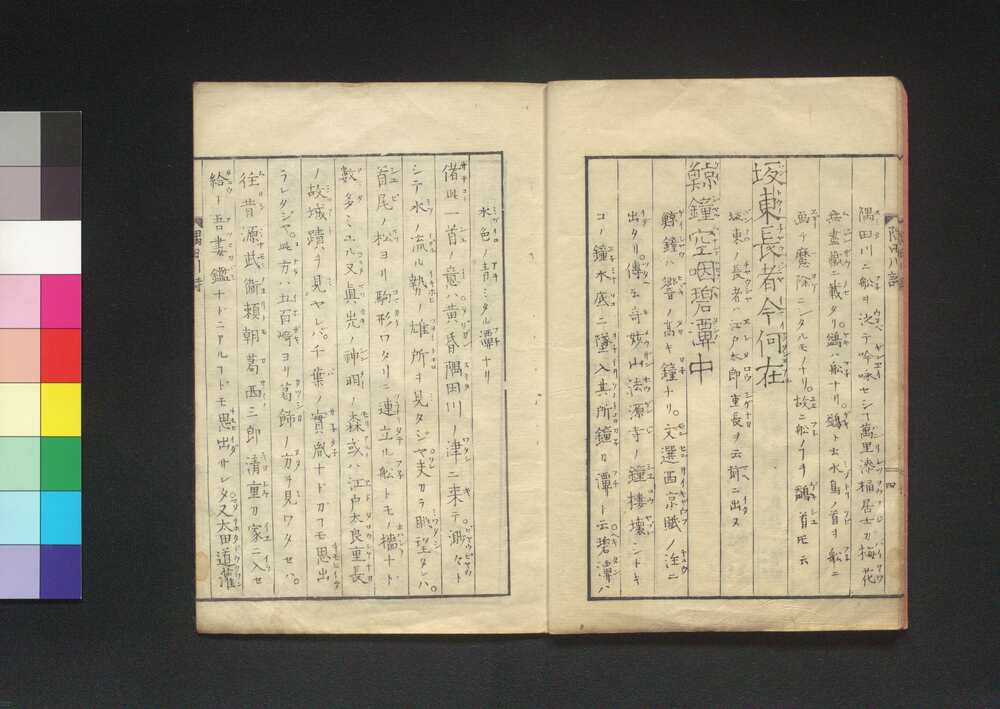 隅田川ニ船ヲ泛テ吟咏セシヿ萬里漆桶居士カ梅花
無盡藏ニ載タリ鷁ハ船ナリ鷁ト云水鳥ノ首ヲ船ニ
画テ魔除ニシタルモノナリ故ニ船ノヿヲ鷁首トモ云
坂東長者今何在
坂東ノ長者ハ江戸太郎重長ヲ云前ニ出ス
鯨鐘空咽碧潭中
鯨鐘ハ響ノ高キ鐘ナリ文選西京賦ノ注ニ
出タリ傳云奇妙山法源寺ノ鐘樓壊シトキ
コノ鐘水底ニ墜入其所鐘カ潭ト云碧潭ハ
四
水色ノ青ミタル潭ナリ
偖此一首ノ意ハ黄昏隅田川ノ津ニ来テ渺々ト
シテ水ノ流ル勢ノ雄所ヲ見タシヤ夫カラ眺望タレハ
首尾ノ松ヨリ駒形ワタリニ連立ル船トモノ檣ナト
数多ミユル又真先ノ神明ノ森或ハ江戸太良重長
ノ故城蹟ヲ見ヤレハ千葉ノ實胤ナトカヿモ思出
ラレタシヤ此方ハ五百崎ヨリ葛飾ノ方ヲ見ワタセハ
往昔源武衛頼朝葛西三郎清重カ家ニ入セ
給ト吾妻鑑ナトニアルヿトモ思出サレタ又太田道灌
隅田川詩